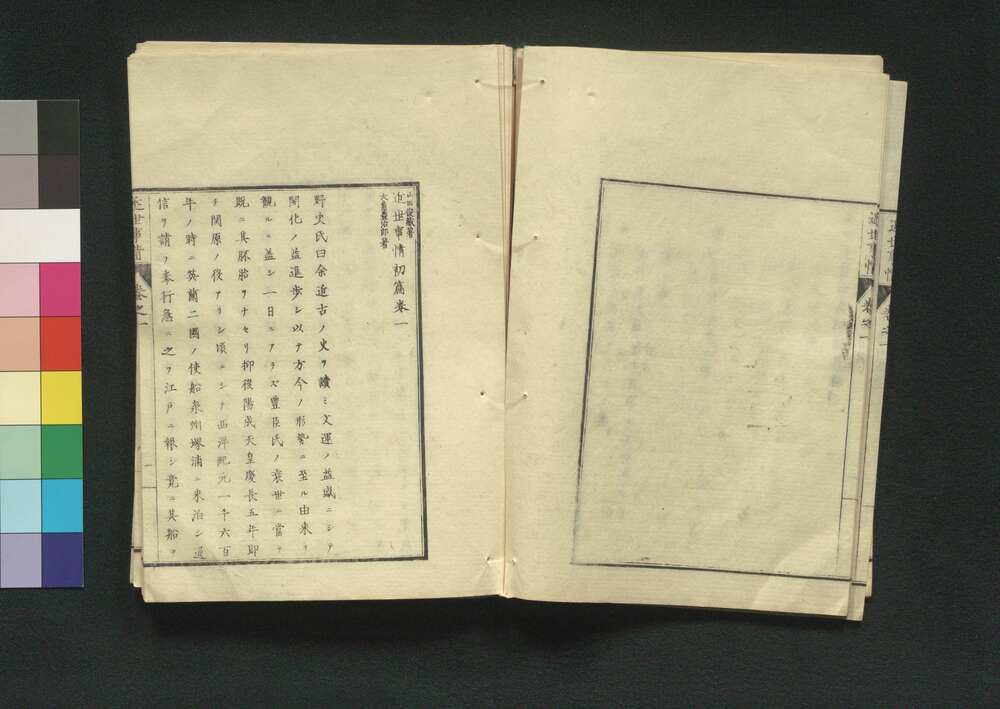 近世事情
卷之一
近世事情
卷之一
近世事情初篇卷一
山田俊藏著
大角豊治郎著
野史氏曰余近古ノ史ヲ讀ミ文運ノ益盛ニシテ
開化ノ益進歩シ以テ方今ノ形勢ニ至ル由來ヲ
觀ルニ蓋シ一日ニアラズ豐臣氏ノ衰世ニ當テ
既ニ其胚胎ヲナセリ抑後陽成天皇慶長五年即
チ関原ノ役アリシ頃ニシテ西洋紀元一千六百
年ノ時ニ英蘭二國ノ使船泉州堺浦ニ來泊シ通
信ヲ請フ奉行急ニ之ヲ江戸ニ報シ竟ニ其船ヲ
近世事情
卷之一